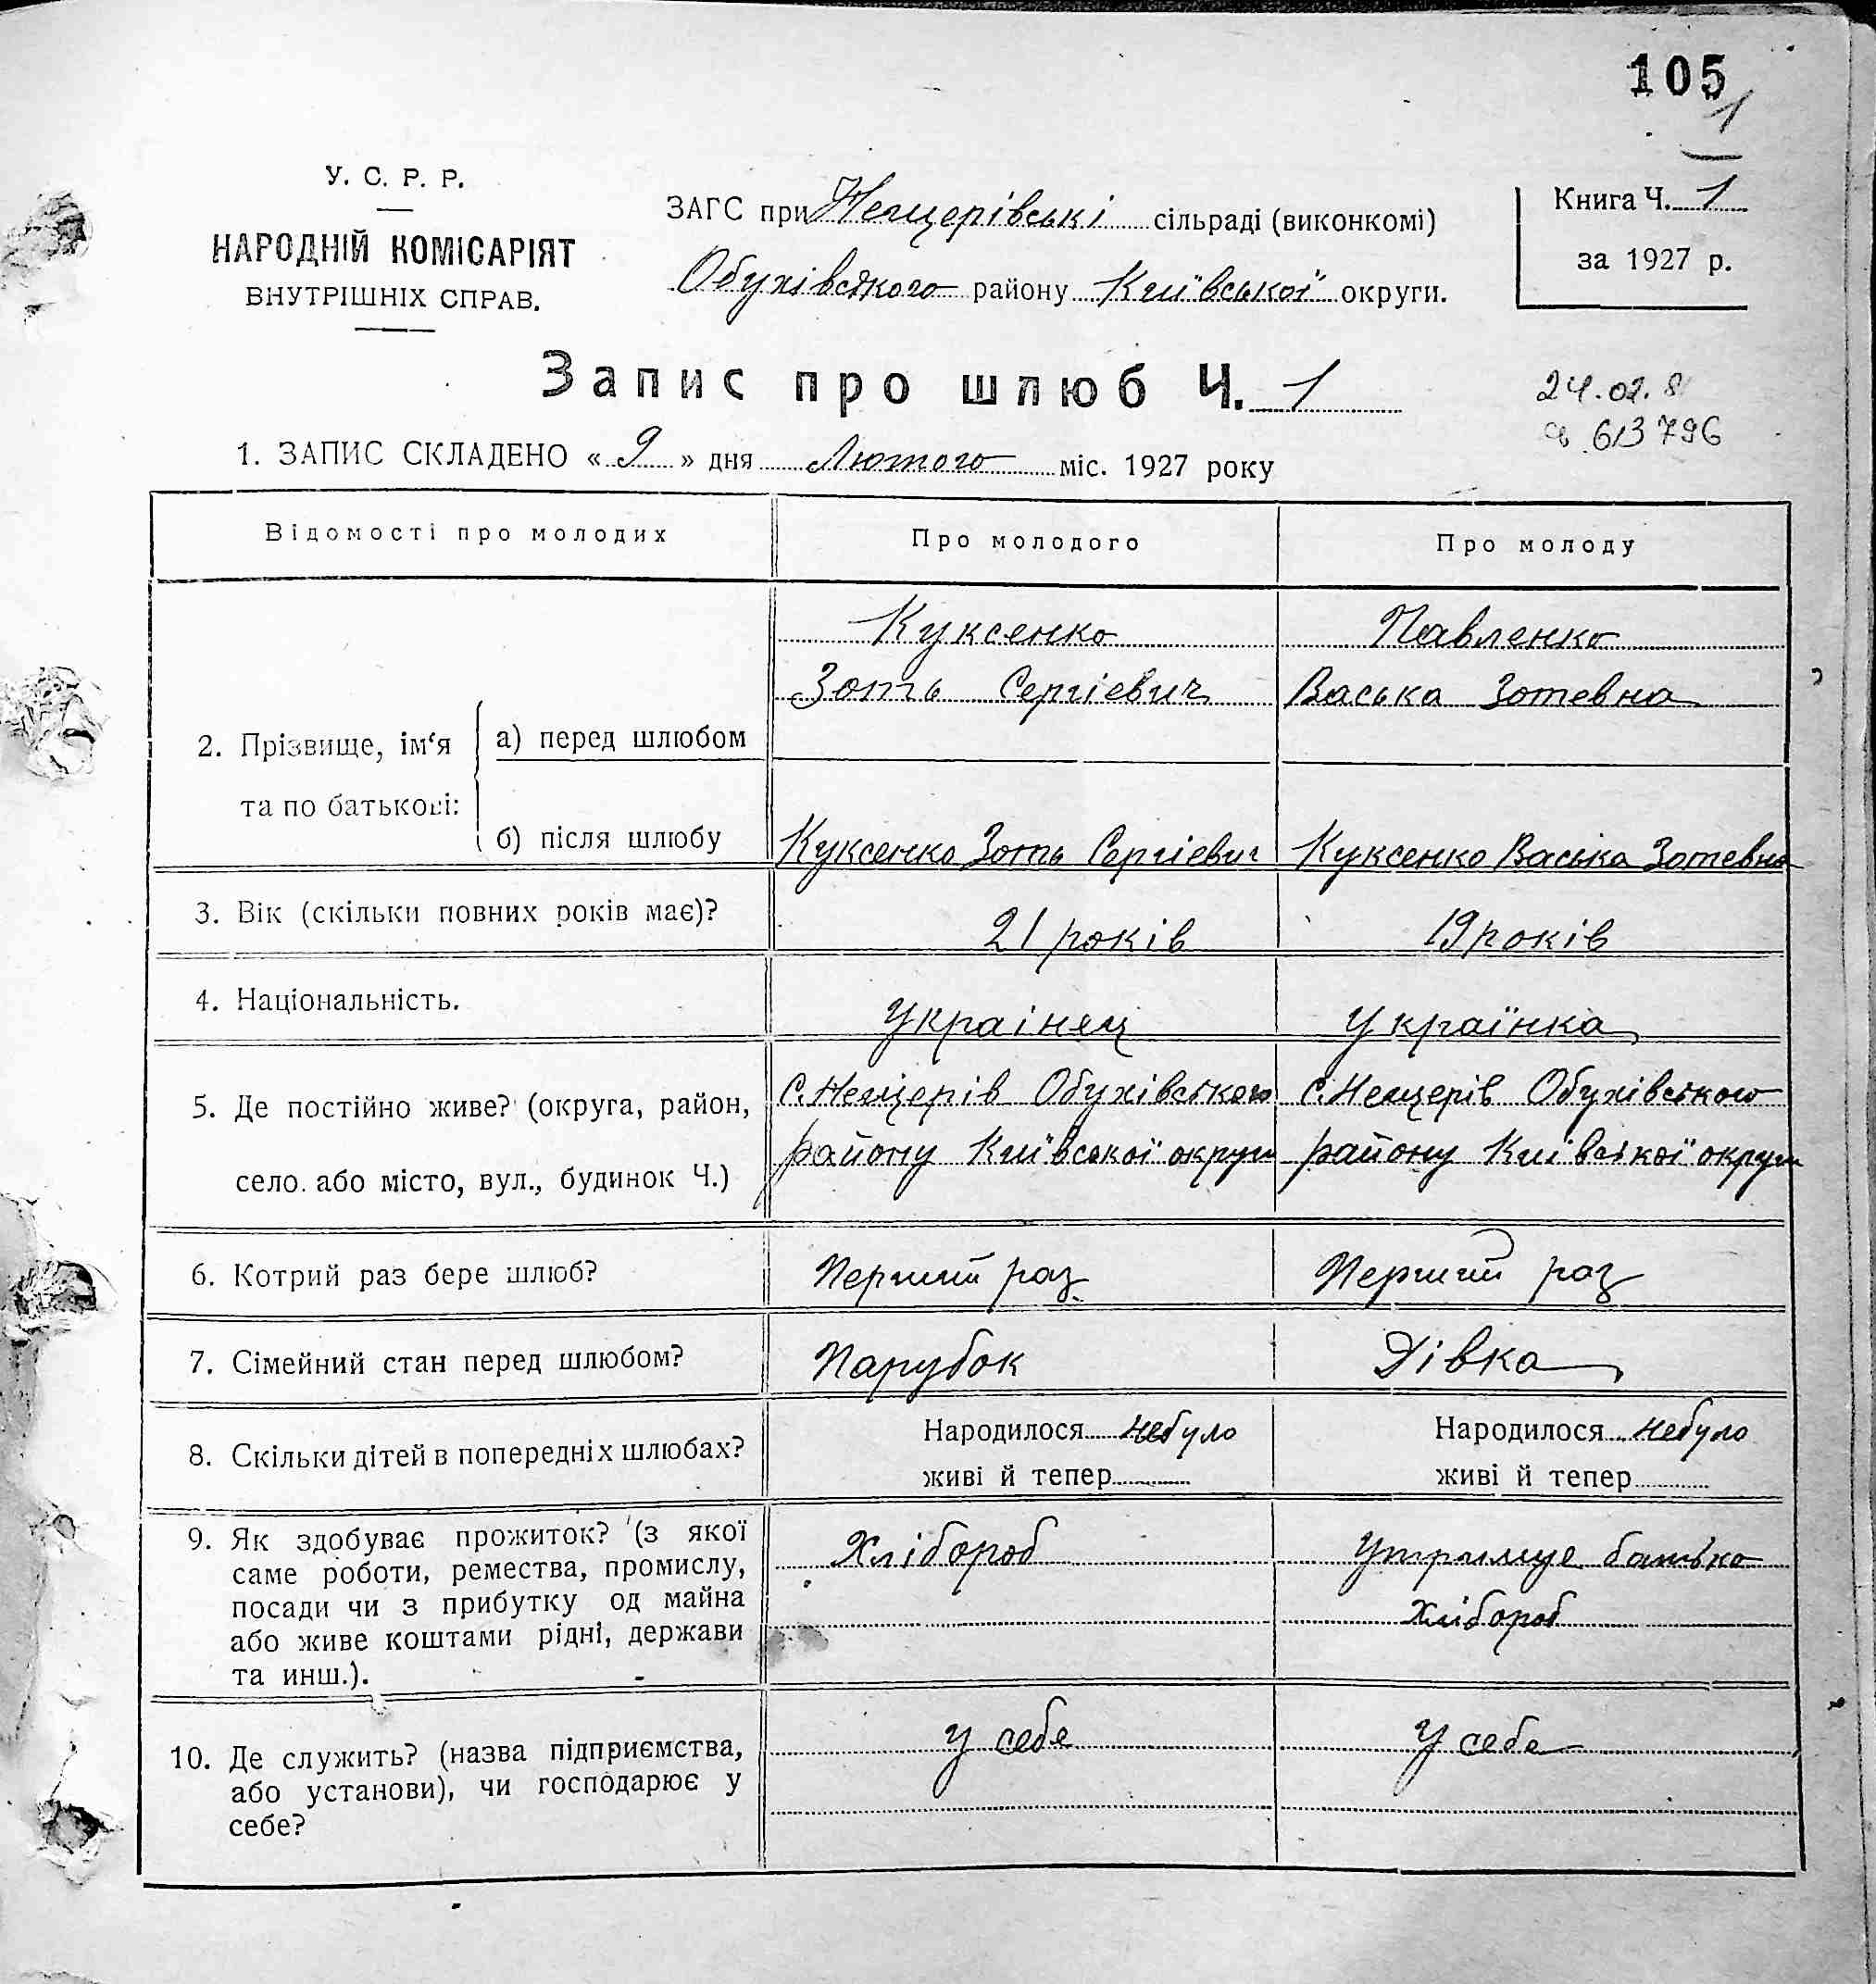 105
1
У. С. Р. Р.
НАРОДНІЙ КОМІСАРІЯТ
ВНУТРІШНІХ СПРАВ.
ЗАГС при Нещерівські сільраді (виконкомі)
Обухівського району Київської округи.
Книга Ч. 1
за 1927 р.
Запис про шлюб Ч. 1
24.02.8
613796
1. ЗАПИС СКЛАДЕНО « 9 » дня Лютого міс. 1927 року
Відомості про молодих Про молодого Про молоду
Куксенко Павленко
Зоть Сергіевич Васька Зотевна
2. Прізвище, ім‘я а) перед шлюбом
та по батькові:
б) після шлюбу Куксенко Зоть Сергіевич Куксенко Васька Зотевна
3. Вік (скільки повних років має)? 21 років 19 років
4. Національність. Украінец Українка
5. Де постійно живе? (округа, район, С. Нещерів Обухівського С. Нещерів Обухівського
село. або місто, вул., будинок Ч.) району Київської округи району Київської округи
6. Котрий раз бере шлюб? Перший раз Перший раз
7. Сімейний стан перед шлюбом? Парубок Дівка
8. Скільки дітей в попередніх шлюбах? Народилося небуло Народилося небуло
живі й тепер живі й тепер
9. Як здобуває прожиток? (з якої Хлібороб Утримує батько
саме роботи, ремества, промислу, Хлібороб
посади чи з прибутку од майна
або живе коштами рідні, держави
та инш.).
10. Де служить? (назва підприємства, у себе у себе
або установи), чи господарює у
себе?